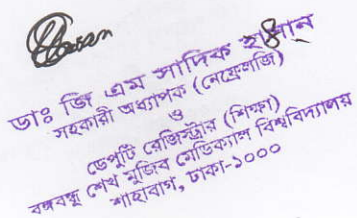 Hasan
ডাঃ জি এম সাদিক হাসান
সহকারী অধ্যাপক (নেফ্রোলজি)
ও
ডেপুটি রেজিস্ট্রার (শিক্ষা)
বঙ্গবন্ধু শেখ মুজিব মেডিক্যাল বিশ্ববিদ্যালয়
শাহাবাগ, ঢাকা-১০০০